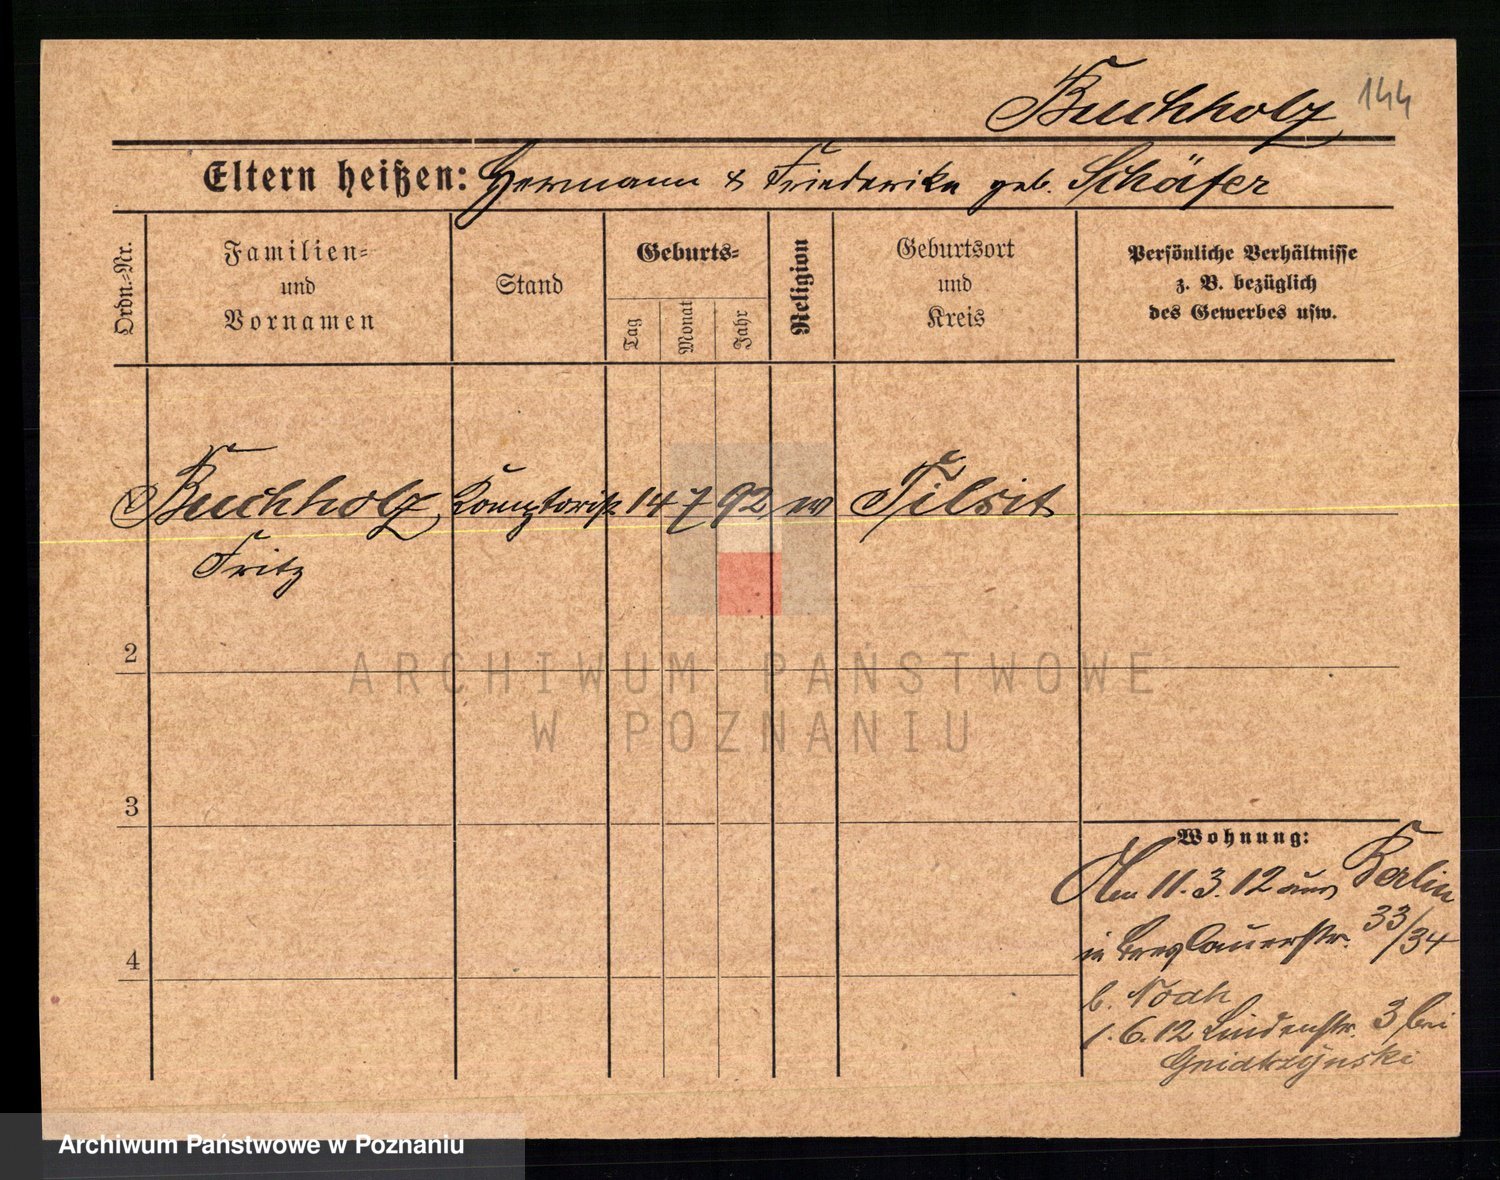 Buchholz 144
Eltern heißen: Hermann & Friederike geb. Schäfer
Ordn.=Nr.
Familien=
und
Vornamen
Stand
Geburts=
Tag
Monat
Jahr
Religion
Geburtsort
und
Kreis
Persönliche Verhältnisse
z. B. bezüglich
des Gewerbes usw.
Buchholz Komptorist 14 7 92 Tilsit
Fritz
2
3
4
Wohnung:
Am 11.3.12 aus Berlin
in Breslauerstr. 33/34
b. Noah
1.6.12 Lindenstr. 3 bei
ARCHIWUM PAŃSTWOWE
W POZNANIU
Archiwum Państwowe w Poznaniu